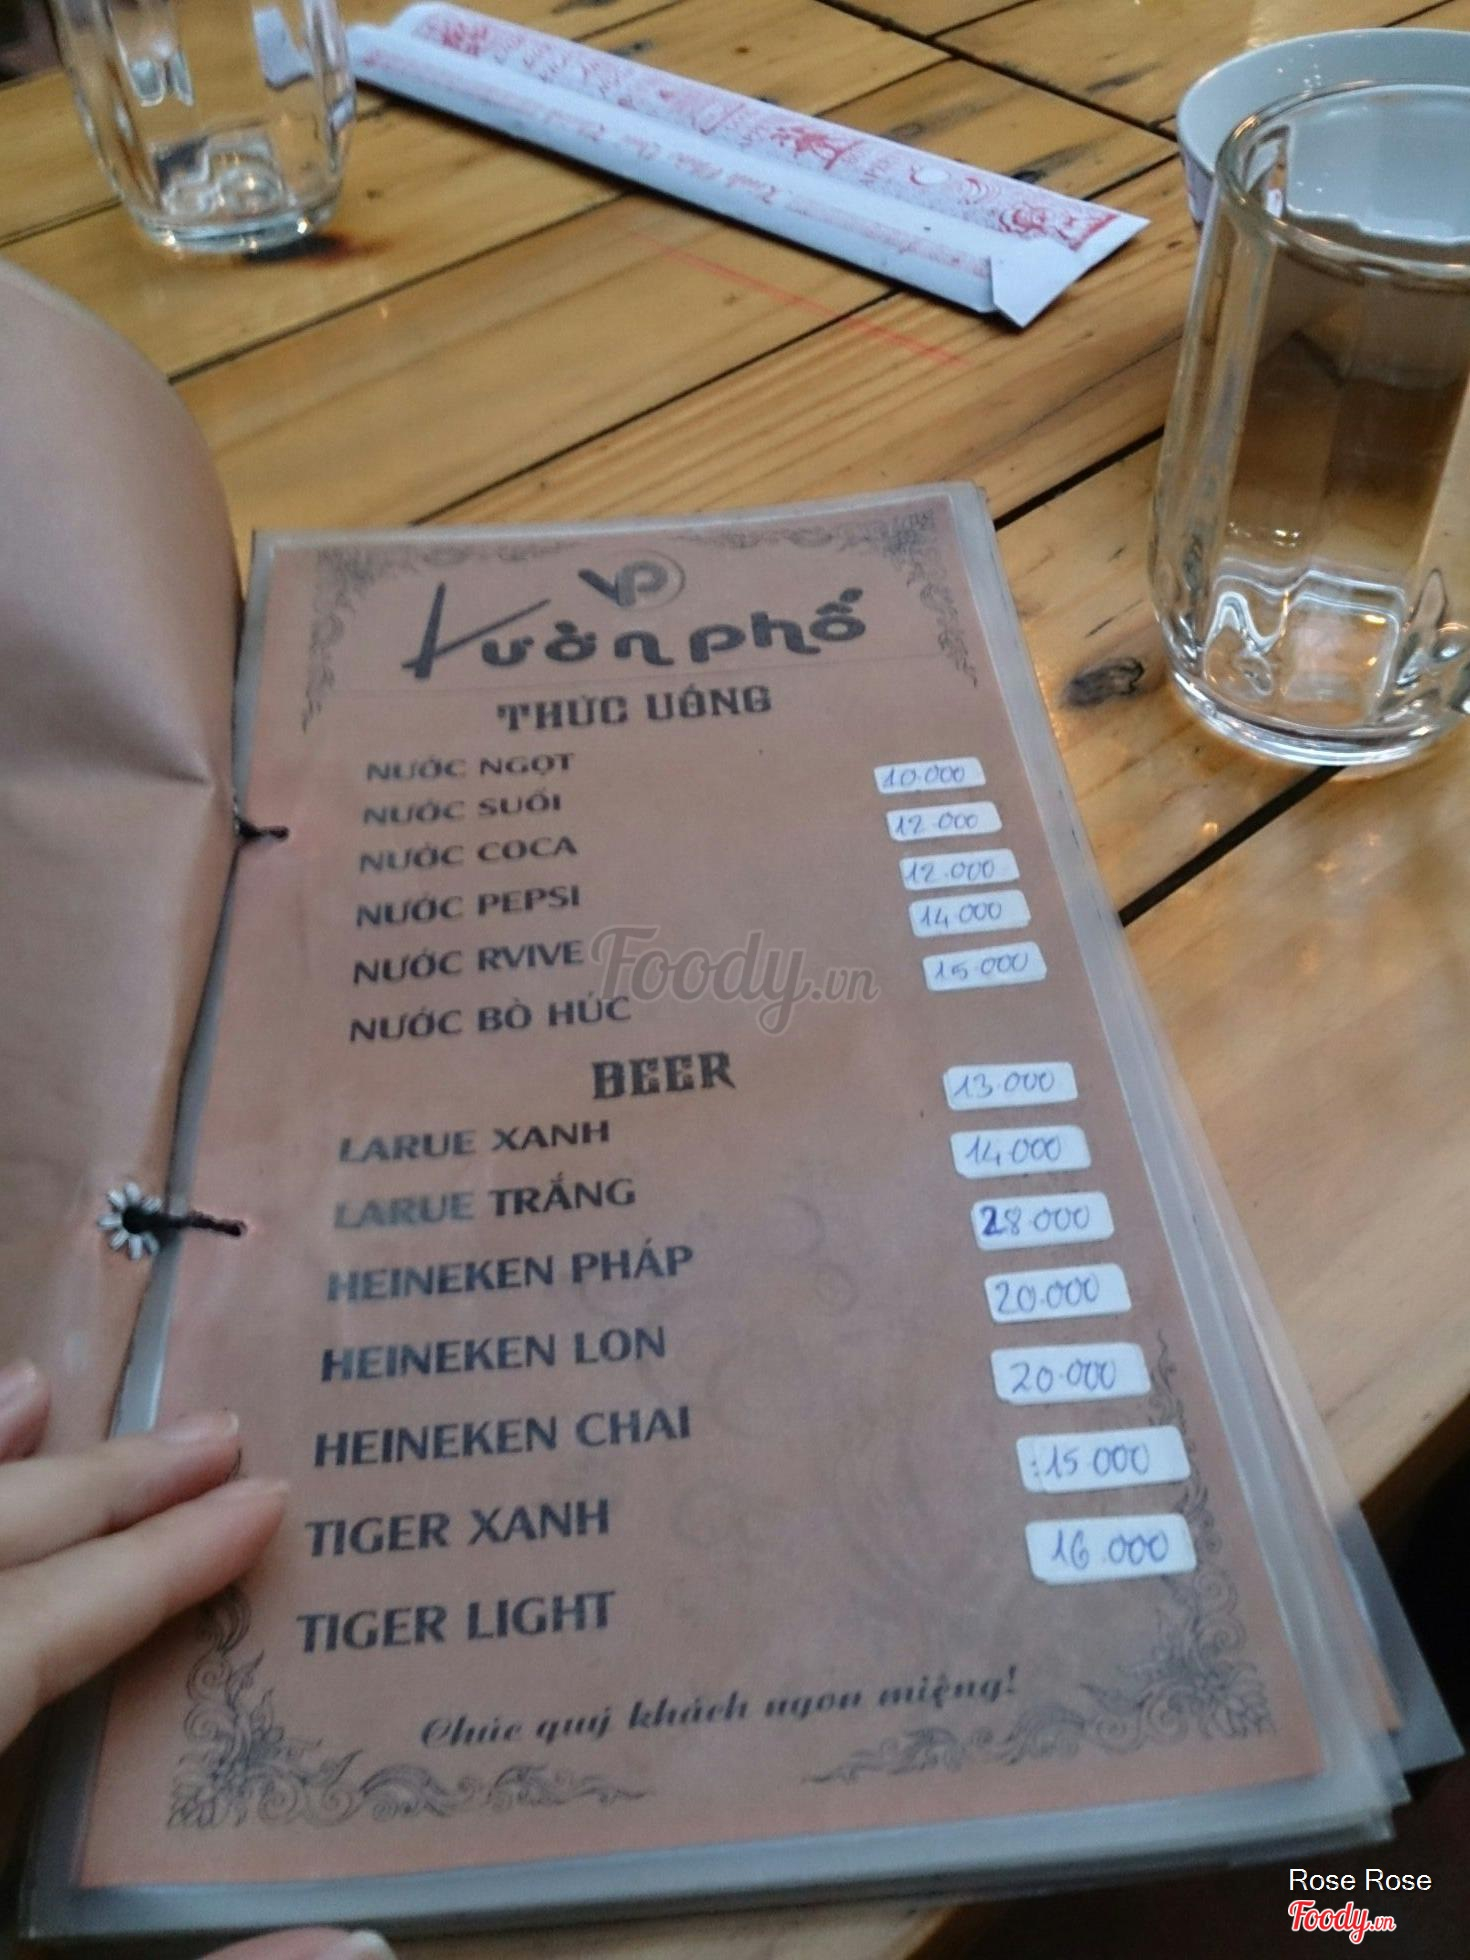 VP
Vườn phố
THỨC UỐNG
NƯỚC NGỌT
NƯỚC SUỐI 10.000
NƯỚC COCA 12.000
NƯỚC PEPSI 12.000
NƯỚC RVIVE 14.000
NƯỚC BÒ HÚC 15.000
BEER
LARUE XANH 13.000
LARUE TRẮNG 14.000
HEINEKEN PHÁP 28.000
HEINEKEN LON 20.000
HEINEKEN CHAI 20.000
TIGER XANH 15.000
TIGER LIGHT 16.000
Chúc quý khách ngon miệng!
Foody.vn
Rose Rose
Foody.vn